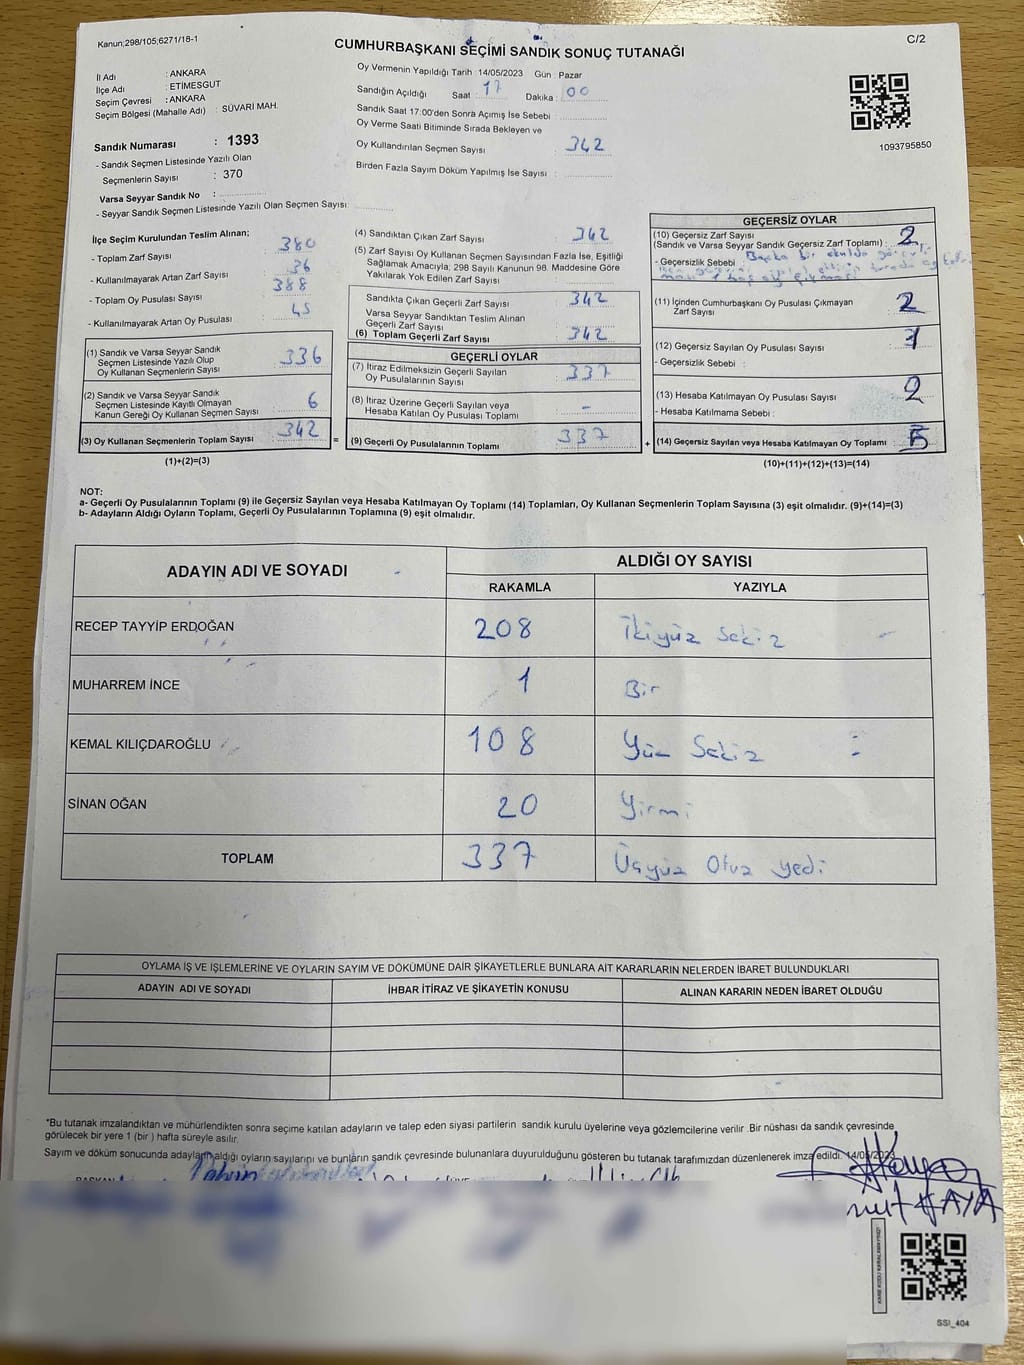 Kanun;298/105;6271/18-1
C/2
CUMHURBAŞKANI SEÇİMİ SANDIK SONUÇ TUTANAĞI
İl Adı : ANKARA
İlçe Adı : ETİMESGUT
Seçim Çevresi : ANKARA
Seçim Bölgesi (Mahalle Adı) : SÜVARİ MAH.
Sandık Numarası : 1393
- Sandık Seçmen Listesinde Yazılı Olan
Seçmenlerin Sayısı : 370
Varsa Seyyar Sandık No :
- Seyyar Sandık Seçmen Listesinde Yazılı Olan Seçmen Sayısı:
Oy Vermenin Yapıldığı Tarih : 14/05/2023 Gün : Pazar
Sandığın Açıldığı Saat : 17 Dakika : 00
Sandık Saat 17:00'den Sonra Açımış İse Sebebi :
Oy Verme Saati Bitiminde Sırada Bekleyen ve
Oy Kullandırılan Seçmen Sayısı : 342
Birden Fazla Sayım Döküm Yapılmış İse Sayısı :
1093795850
İlçe Seçim Kurulundan Teslim Alınan;
- Toplam Zarf Sayısı : 380
- Kullanılmayarak Artan Zarf Sayısı : 36
- Toplam Oy Pusulası Sayısı : 388
- Kullanılmayarak Artan Oy Pusulası : 45
(1) Sandık ve Varsa Seyyar Sandık
Seçmen Listesinde Yazılı Olup
Oy Kullanan Seçmenlerin Sayısı : 336
(2) Sandık ve Varsa Seyyar Sandık
Seçmen Listesinde Kayıtlı Olmayan
Kanun Gereği Oy Kullanan Seçmen Sayısı : 6
(3) Oy Kullanan Seçmenlerin Toplam Sayısı : 342 =
(1)+(2)=(3)
(4) Sandıktan Çıkan Zarf Sayısı : 342
(5) Zarf Sayısı Oy Kullanan Seçmen Sayısından Fazla İse, Eşitliği
Sağlamak Amacıyla; 298 Sayılı Kanunun 98. Maddesine Göre
Yakılarak Yok Edilen Zarf Sayısı :
Sandıkta Çıkan Geçerli Zarf Sayısı : 342
Varsa Seyyar Sandıktan Teslim Alınan
Geçerli Zarf Sayısı :
(6) Toplam Geçerli Zarf Sayısı : 342
GEÇERLİ OYLAR
(7) İtiraz Edilmeksizin Geçerli Sayılan
Oy Pusulalarının Sayısı : 337
(8) İtiraz Üzerine Geçerli Sayılan veya
Hesaba Katılan Oy Pusulası Toplamı : -
(9) Geçerli Oy Pusulalarının Toplamı : 337 +
GEÇERSİZ OYLAR
(10) Geçersiz Zarf Sayısı
(Sandık ve Varsa Seyyar Sandık Geçersiz Zarf Toplamı) : 2
- Geçersizlik Sebebi : Başka bir okulda
(11) İçinden Cumhurbaşkanı Oy Pusulası Çıkmayan
Zarf Sayısı : 2
(12) Geçersiz Sayılan Oy Pusulası Sayısı : 1
- Geçersizlik Sebebi :
(13) Hesaba Katılmayan Oy Pusulası Sayısı : 2
- Hesaba Katılmama Sebebi :
(14) Geçersiz Sayılan veya Hesaba Katılmayan Oy Toplamı : 5
(10)+(11)+(12)+(13)=(14)
NOT:
a- Geçerli Oy Pusulalarının Toplamı (9) ile Geçersiz Sayılan veya Hesaba Katılmayan Oy Toplamı (14) Toplamları, Oy Kullanan Seçmenlerin Toplam Sayısına (3) eşit olmalıdır. (9)+(14)=(3)
b- Adayların Aldığı Oyların Toplamı, Geçerli Oy Pusulalarının Toplamına (9) eşit olmalıdır.
ADAYIN ADI VE SOYADI
ALDIĞI OY SAYISI
RAKAMLA YAZIYLA
RECEP TAYYİP ERDOĞAN 208 İkiyüz Sekiz
MUHARREM İNCE 1 Bir
KEMAL KILIÇDAROĞLU 108 Yüz Sekiz
SİNAN OĞAN 20 Yirmi
TOPLAM 337 Üçyüz Otuz yedi
OYLAMA İŞ VE İŞLEMLERİNE VE OYLARIN SAYIM VE DÖKÜMÜNE DAİR ŞİKAYETLERLE BUNLARA AİT KARARLARIN NELERDEN İBARET BULUNDUKLARI
ADAYIN ADI VE SOYADI İHBAR İTİRAZ VE ŞİKAYETİN KONUSU ALINAN KARARIN NEDEN İBARET OLDUĞU
*Bu tutanak imzalandıktan ve mühürlendikten sonra seçime katılan adayların ve talep eden siyasi partilerin sandık kurulu üyelerine veya gözlemcilerine verilir .Bir nüshası da sandık çevresinde
görülecek bir yere 1 (bir ) hafta süreyle asılır.
Sayım ve döküm sonucunda adayların aldığı oyların sayılarını ve bunların sandık çevresinde bulunanlara duyurulduğunu gösteren bu tutanak tarafımızdan düzenlenerek imza edildi. 14/05/2023
KAYA
SSİ_404